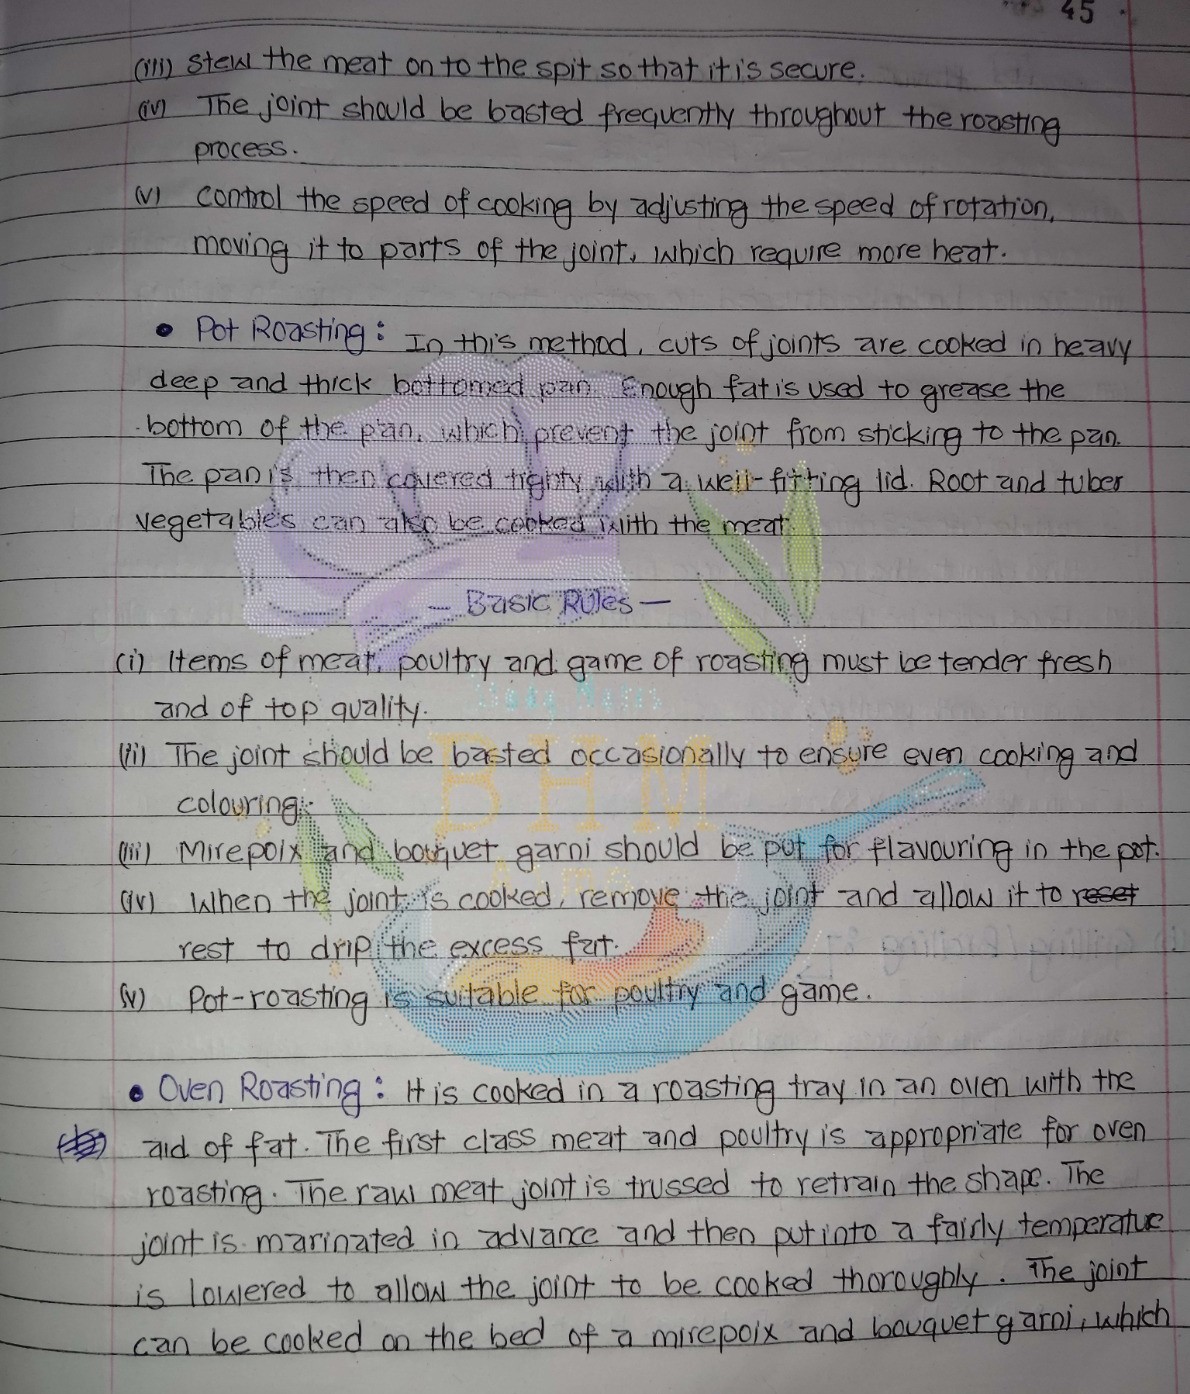 45
(iii) Stew the meat on to the spit so that it is secure.
(iv) The joint should be basted frequently throughout the roasting
process.
(v) Control the speed of cooking by adjusting the speed of rotation,
moving it to parts of the joint, which require more heat.
• Pot Roasting: In this method, cuts of joints are cooked in heavy
deep and thick bottomed pan. Enough fat is used to grease the
bottom of the pan, which prevent the joint from sticking to the pan.
The pan is then covered tighty with a well-fitting lid. Root and tuber
vegetables can also be cooked with the meat
- Basic Rules -
(i) Items of meat, poultry and game of roasting must be tender fresh
and of top quality.
(ii) The joint should be basted occasionally to ensure even cooking and
colouring.
(iii) Mirepoix and bouquet garni should be put for flavouring in the pot.
BHM
(iv) When the joint is cooked, remove the joint and allow it to reset
rest to drip the excess fat.
(v) Pot-roasting is suitable for poultry and game.
• Oven Roasting: It is cooked in a roasting tray in an oven with the
aid of fat. The first class meat and poultry is appropriate for oven
roasting. The raw meat joint is trussed to retrain the shape. The
joint is marinated in advance and then put into a fairly temperature
is lowered to allow the joint to be cooked thoroughly. The joint
can be cooked on the bed of a mirepoix and bouquet garni, which